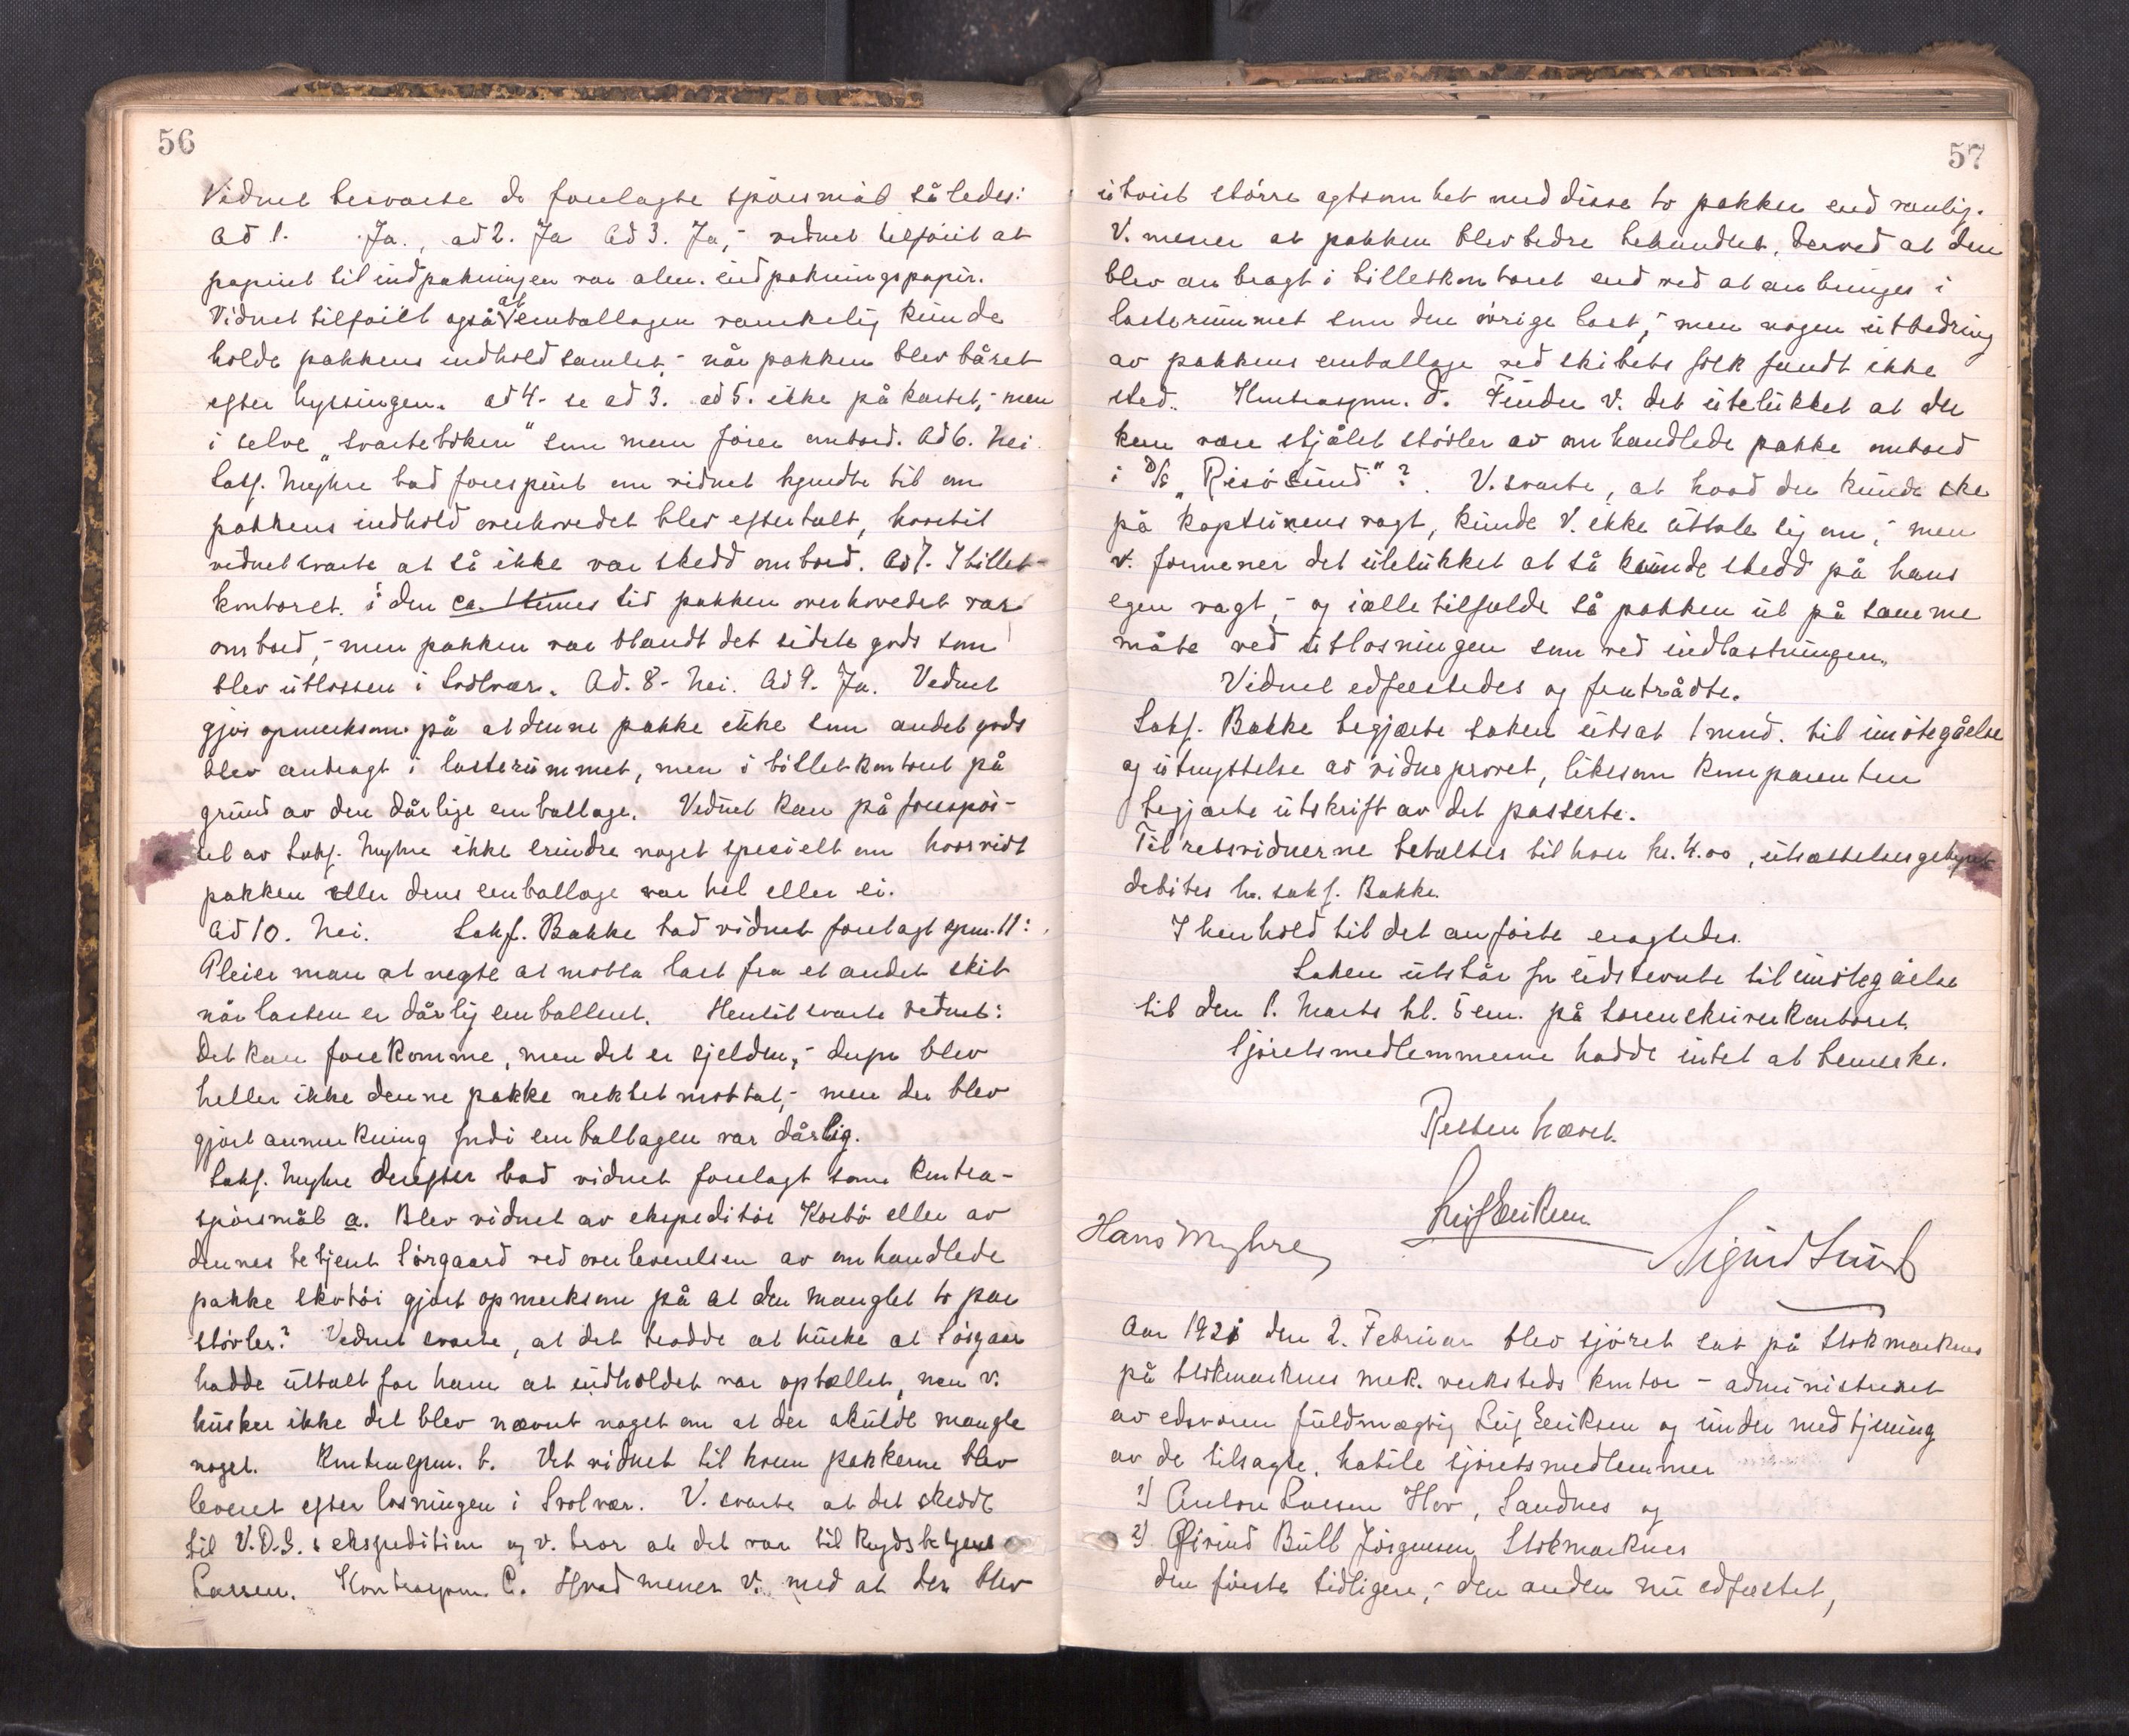 56
Vidnet besvarte de forelagte spørsmål således:
Ad 1. Ja., ad 2. Ja Ad 3. Ja,- vidnet tilføiet at
papiret til indpakningen var alm. indpakningspapir.
Vidnet tilføiet også at emballagen vanskelig kunde
holde pakkens indhold samlet,- når pakken blev båret
efter hyssingen. ad 4- se ad 3. ad 5. ikke på kartet,- men
i selve "svarteboken" som man fører ombord. Ad 6. Nei.
Sakf. Myhre bad forespurt om vidnet kjendte til om
pakkens indhold overhovedet blev eftertalt, hvortil
vidnet svarte at så ikke var skedd ombord. Ad 7. I billet-
kontoret i den ca. 1 times tid pakken overhovedet var
ombord,- men pakken var blandt det sidste gods som
blev utlosset i Svolvær. Ad. 8- Nei. Ad 9. Ja. Vidnet
gjør opmerksom på at denne pakke ikke som andet gods
blev anbragt i lasterummet, men i billetkontoret på
grund av den dårlige emballage. Vidnet kan på forespør-
sel av Sakf. Myhre ikke erindre noget specielt om hvorvidt
pakken eller dens emballage var hel eller ei.
Ad 10. Nei. Sakf. Bakke bad vidnet forelagt spm. 11:
Pleier man at negte at motta last fra et andet skib
når lasten er dårlig emballert. Hertil svarte vidnet:
Det kan forekomme, men det er sjelden,- derfor blev
heller ikke denne pakke nektet mottat,- men der blev
gjort anmerkning fordi emballagen var dårlig.
Sakf. Myhre derefter bad vidnet forelagt som kontra-
spørsmål a. Blev vidnet av ekspeditør Korbø eller av
dennes betjent Sørgaard ved overleverelsen av omhandlede
pakke skotøi gjort opmerksom på at der manglet to par
støvler? Vidnet svarte, at det trodde at huske at Sørgaar
hadde uttalt for ham at indholdet var optællet, men v.
husker ikke det blev nævnt noget om at der skulde mangle
noget. Kontraspm. b. Vet vidnet til hvem pakkerne blev
levert efter losningen i Svolvær. V. svarte at det skedde
til V.D.S. s ekspedition og v. tror at det var til Rygdsbetjent
Larsen. Kontraspm. C. Hvad mener v. med at der blev
57
utvist større agtsomhet med disse to pakker end vanlig.
V. mener at pakken blev bedre behandlet, derved at den
blev anbragt i billetkontoret end ved at anbringes i
lasterummet som den øvrige last,- men nogen utbedring
av pakkens emballage ved skibets folk fandt ikke
sted. Kontraspm. d. Finder v. det utelukket at der
kan være stjålet støvler av omhandlede pakke ombord
i D/S "Risøsund"? V. svarte, at hvad der kunde ske
på kapteinens vagt, kunde V. ikke uttale sig om,- men
v. formener det utelukket at så kunde skedd på hans
egen vagt,- og i alle tilfælde så pakken ut på samme
måte ved utlosningen som ved indlastningen.
Vidnet edfæstedes og fratrådte.
Sakf. Bakke begjærte saken utsat 1 mnd. til imøtegåelse
og utnyttelse av vidneprovet, likesom komparenten
begjærte utskrift av det passerte.
Til retsvidnerne betaltes til hver kr. 4.00, utsættelsesgebyret
debites hr. sakf. Bakke.
I henhold til det anførte eragtedes.
Saken utstår for indstevnte til imøtegåelse
til den 1. Marts kl. 5 em. på Sorenskriverkontoret.
Sjøretsmedlemmerne hadde intet at bemerke.
Retten hævet.
Leif Eriksen
Hans Myhre
Sigurd Lund
Aar 1921 den 2. Februar blev sjøret sat på Stokmarknes
på Stokmarknes mek. verksteds kontor - administreret
av edsvoren fuldmægtig Leif Eriksen og under medtjening
av de tilsagte, habile sjøretsmedlemmer
1) Anton Larsen Hov, Sandnes og
2) Øivind Bull Jørgensen Stokmarknes
den første tidligere,- den anden nu edfæstet,